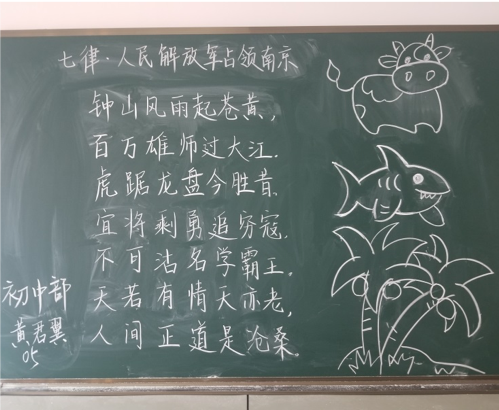 七律·人民解放军占领南京
钟山风雨起苍黄,
百万雄师过大江.
虎踞龙盘今胜昔.
宜将剩勇追穷寇.
不可沽名学霸王.
天若有情天亦老,
人间正道是沧桑.
初中部
黄君翼
05